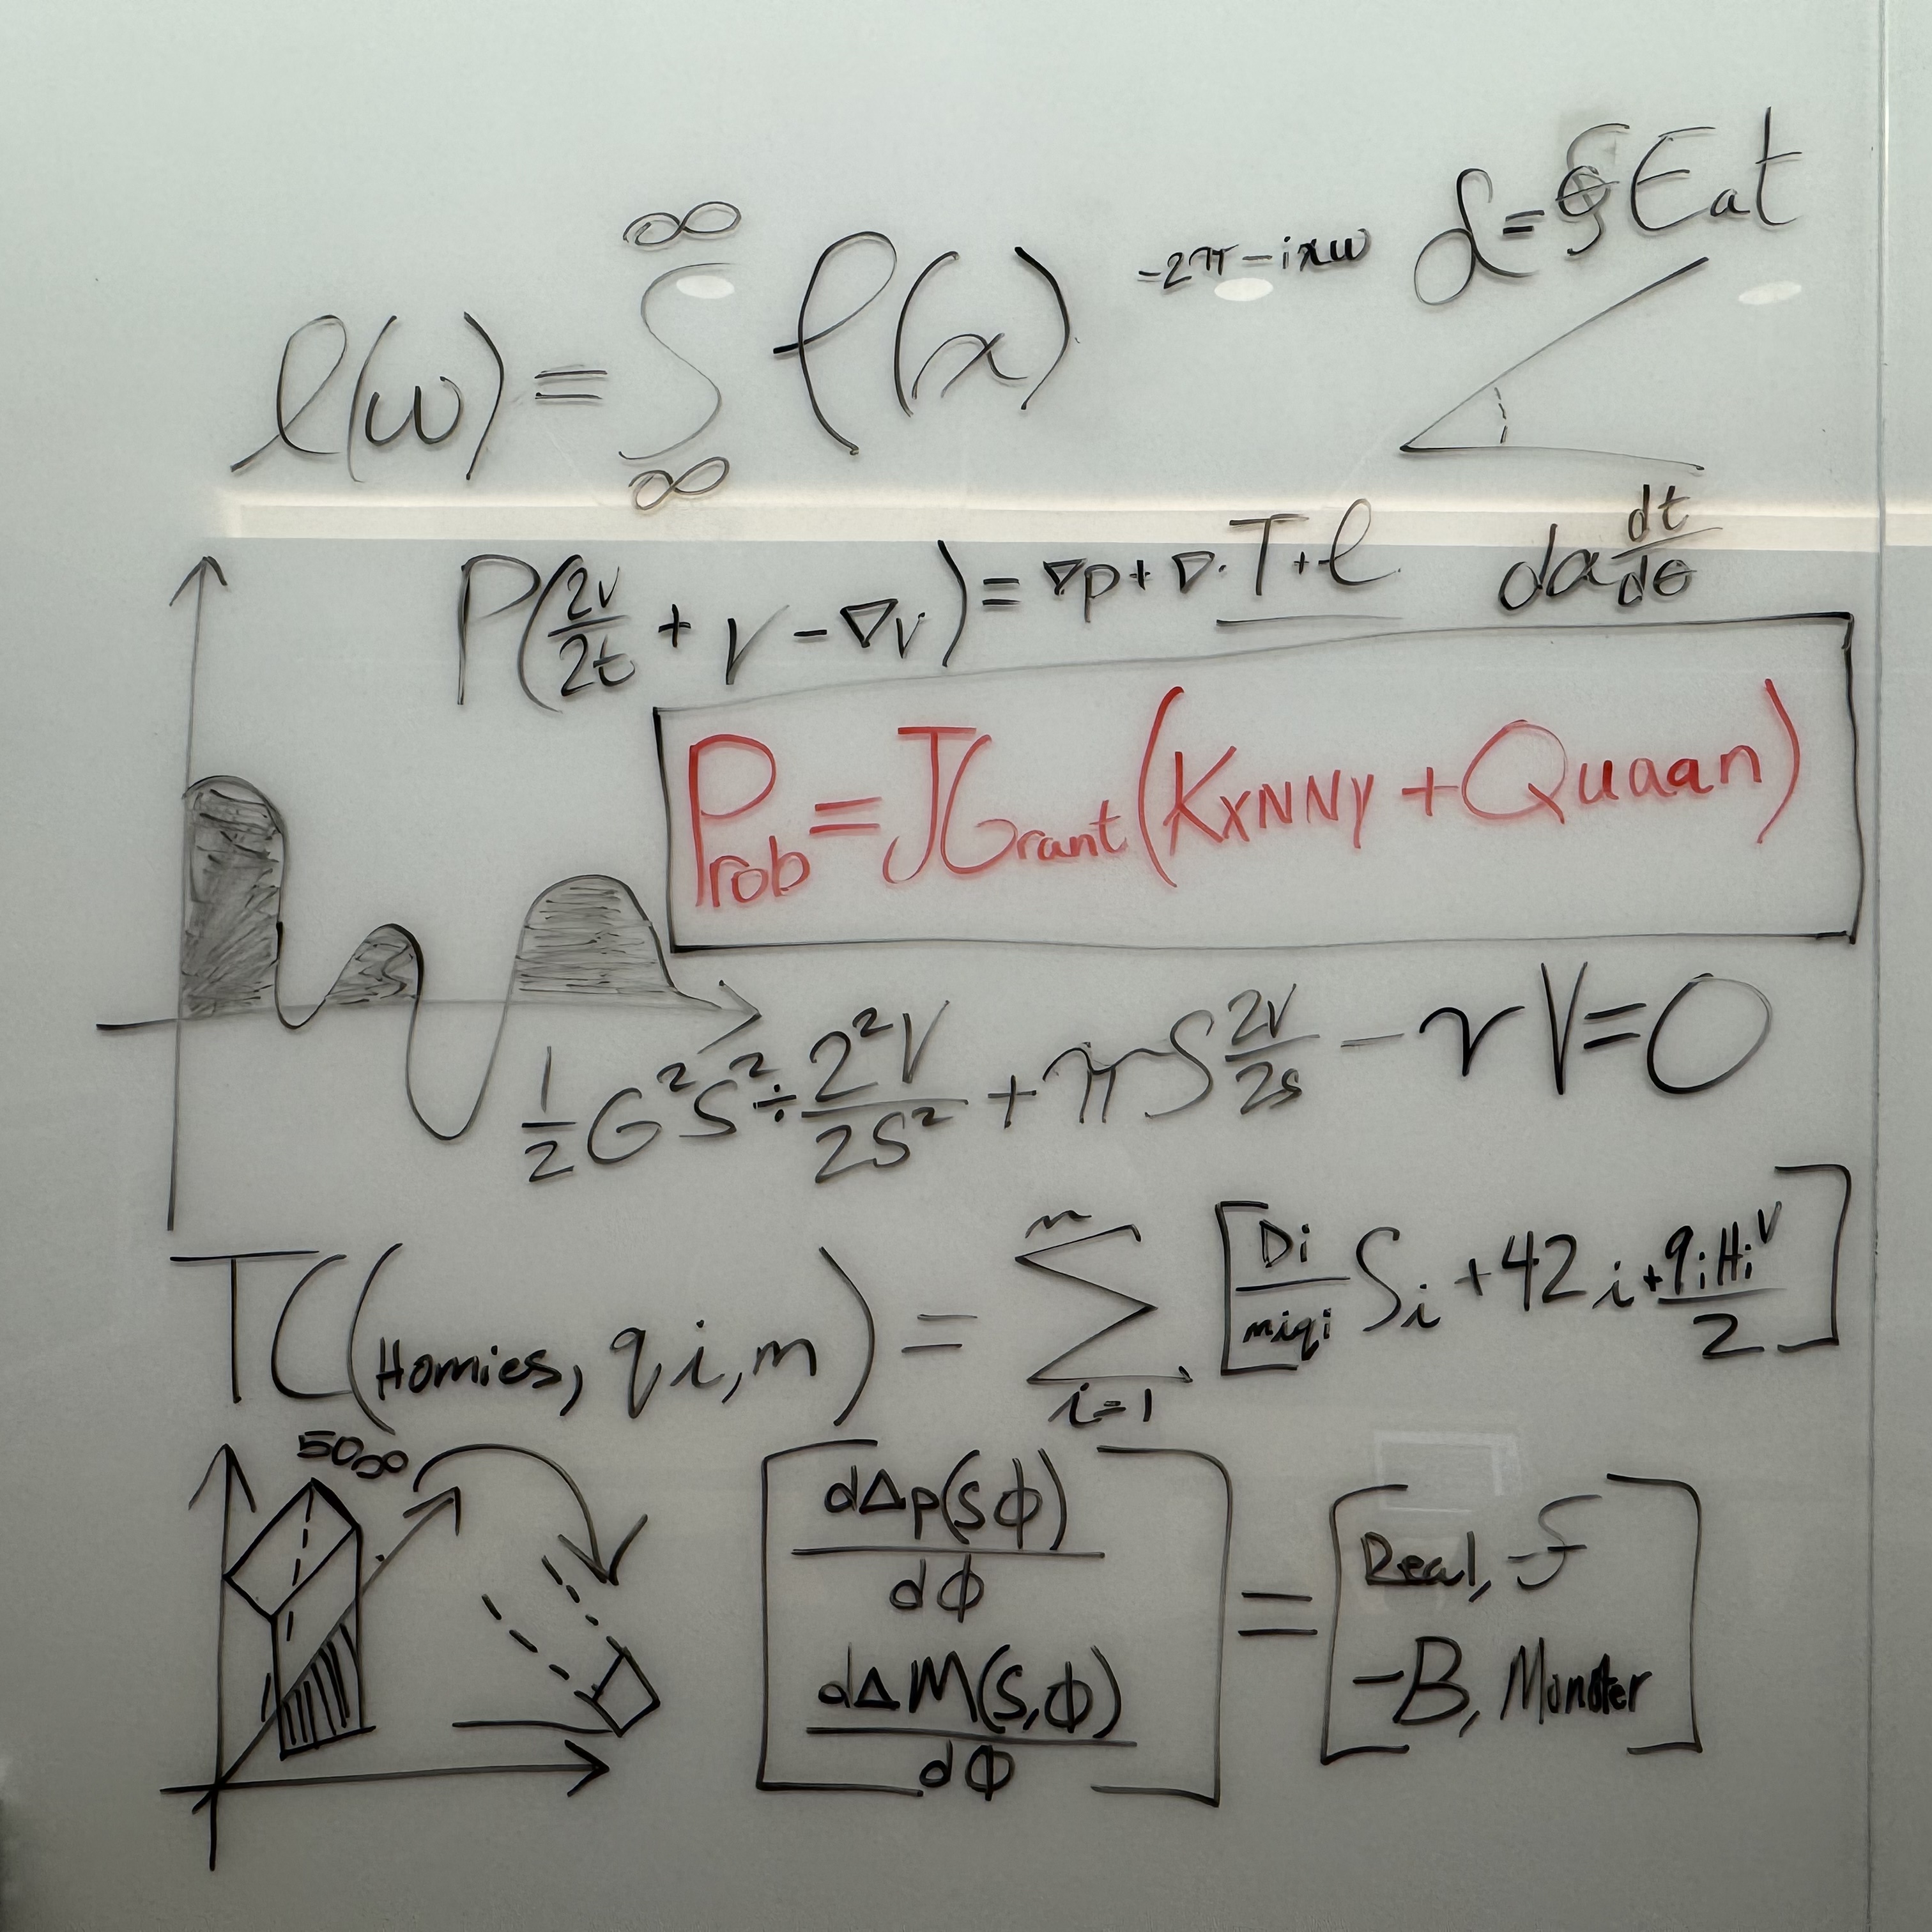 ℓ(ω) = ∫_∞^∞ f(x) -2π-ixω
d = Eat
da dt/dθ
P(2v/2t + v - ∇v) = ∇p + ∇. T + ℓ
Prob = JGrant (KxNNy + Quaan)
1/2 G²S² ÷ 2²V/2S² + πS 2V/2s - rV = 0
TC(Homies, qi, m) = Σ_{i=1}^{n} [Di/miqi Si + 42i + qiHiV/2]
50∞
[dΔp(sϕ)/dϕ dΔM(s,ϕ)/dϕ] = [Real, -f -B, Monster]